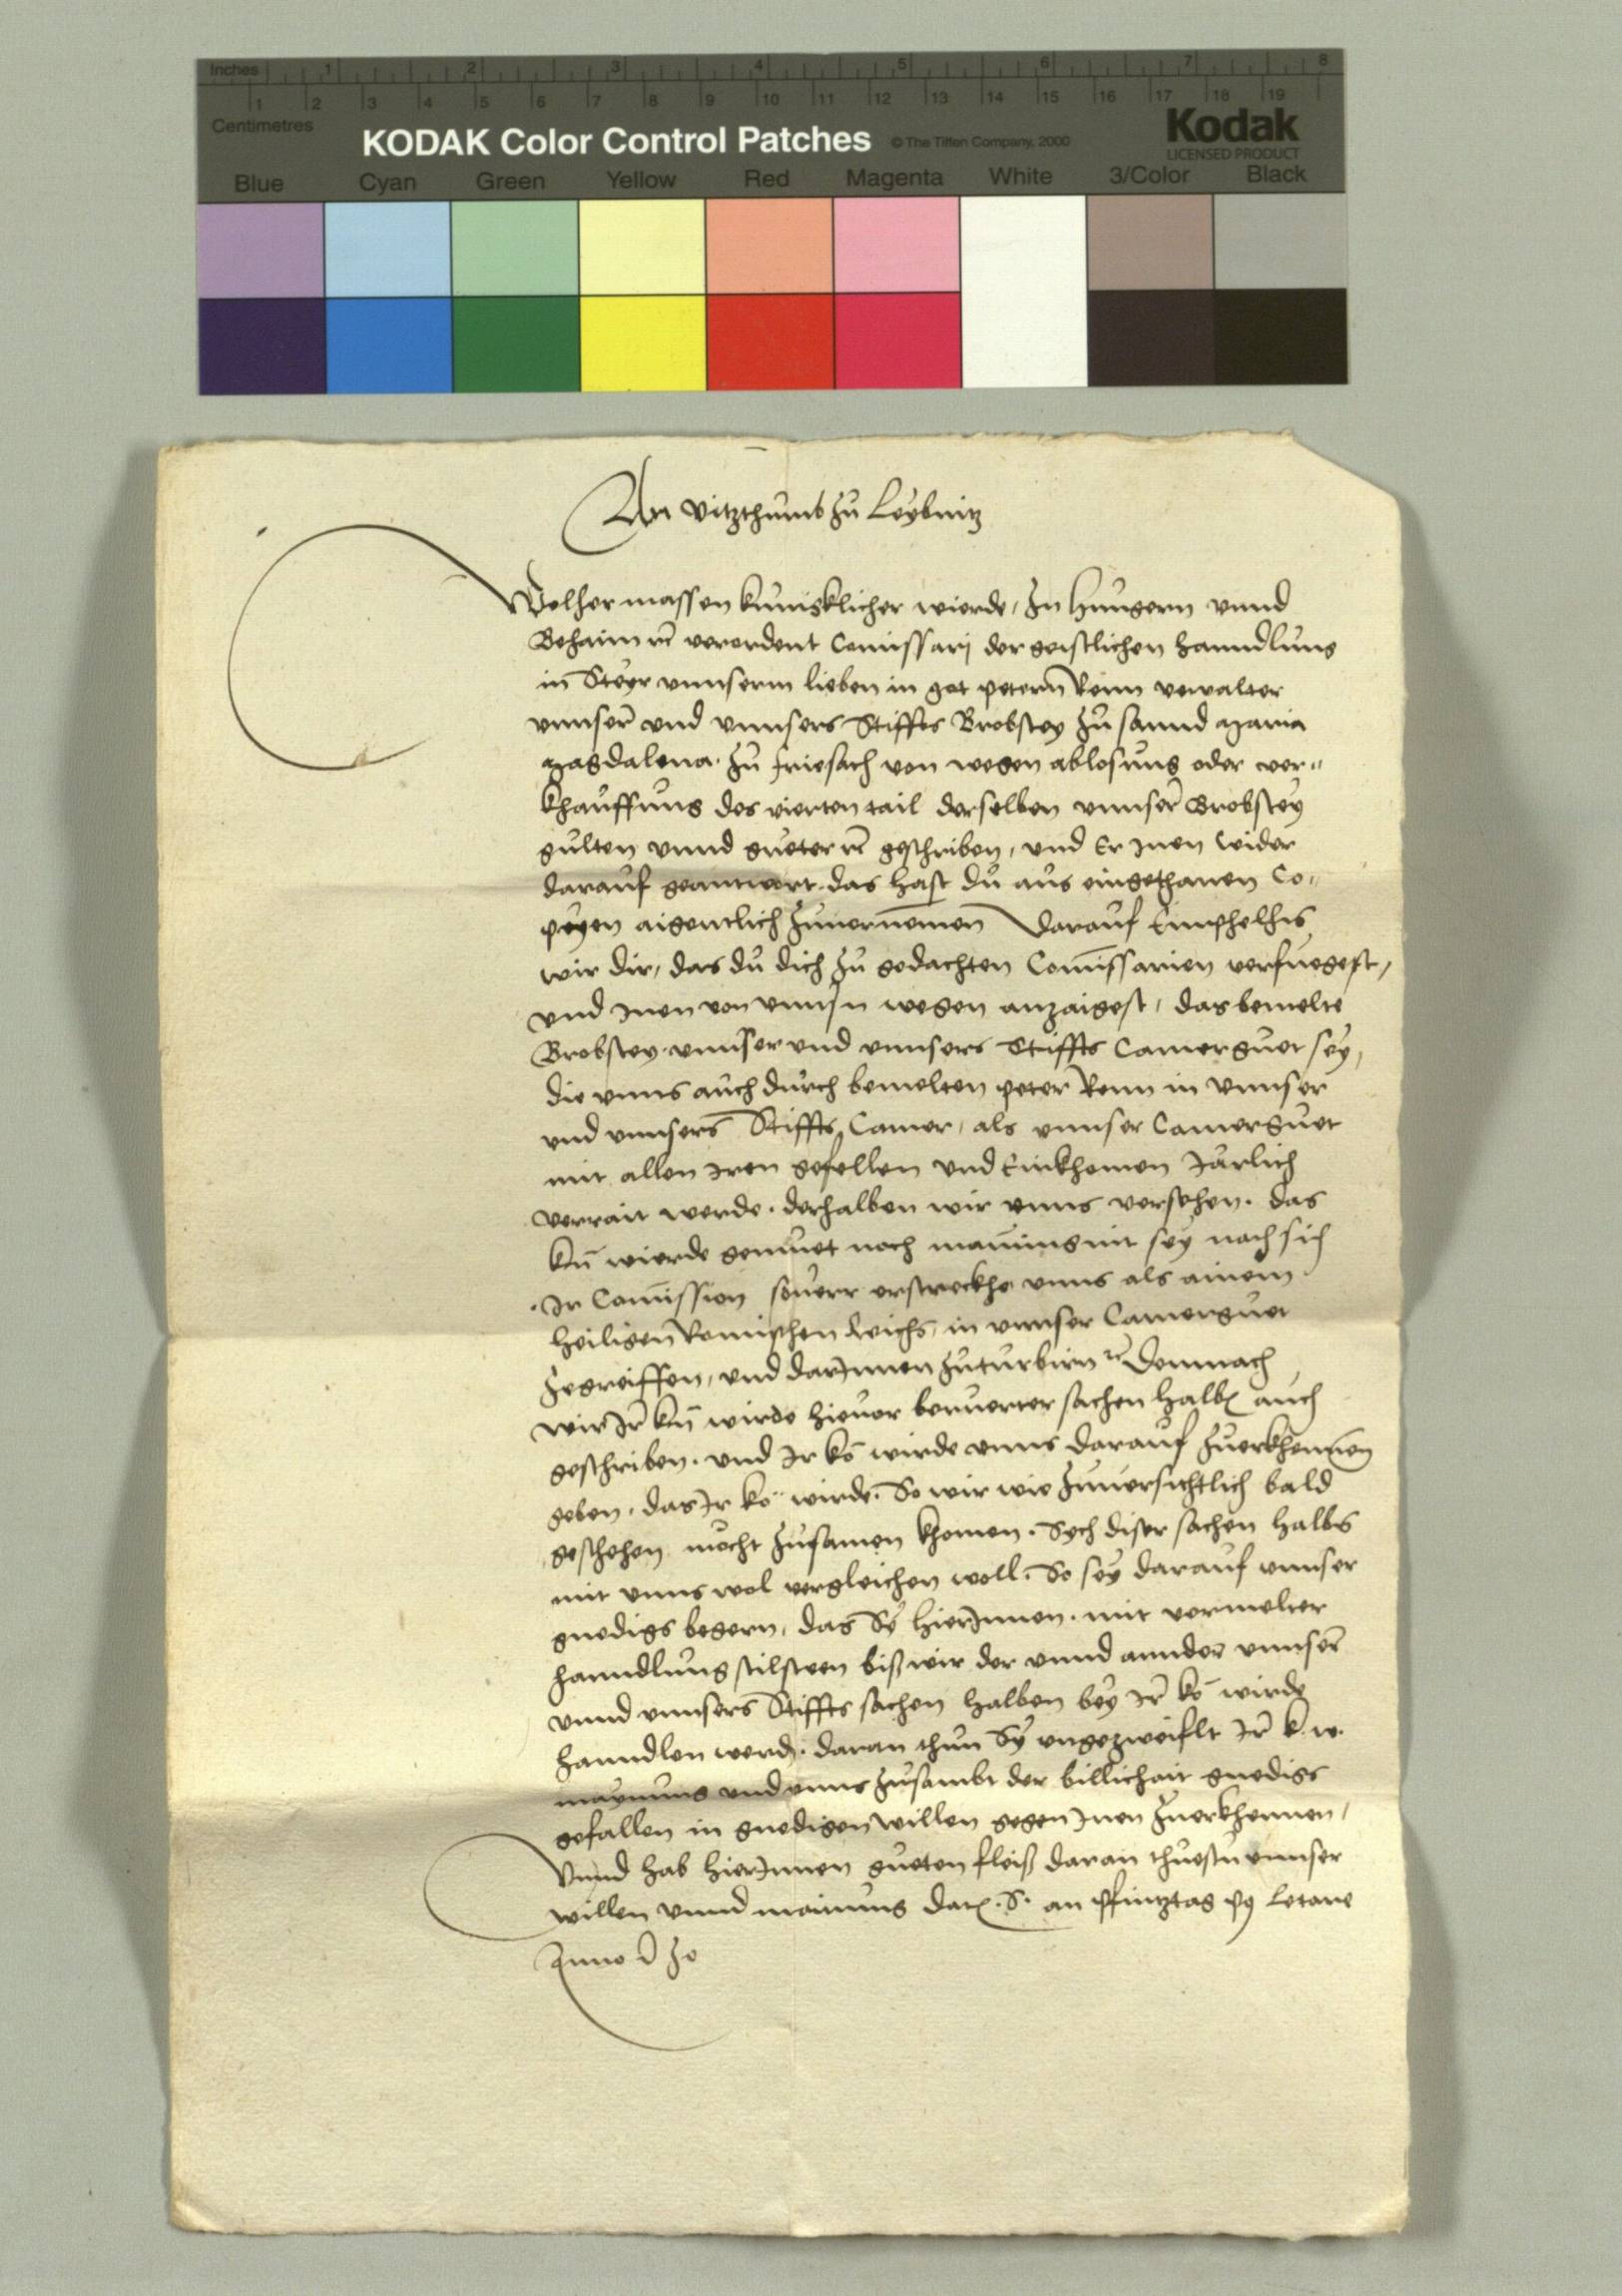 Inches 1 2 3 4 5 6 7 8
1 2 3 4 5 6 7 8 9 10 11 12 13 14 15 16 17 18 19
Centimetres
KODAK Color Control Patches © The Tiffen Company, 2000 Kodak
LICENSED PRODUCT
Blue Cyan Green Yellow Red Magenta White 3/Color Black
An Vitzthumb zu Leybnitz
Welher massen kunigklicher wierde, zu Hungern vnnd
Behaim rc verordent Comissarj der geistlichen hanndlung
in Steyr vnnserm lieben in got petern Renn verwalter
vnnser vnd vnnsers Stiffts Brobstey zu sannd Maria
Magdalena. zu Friesach von wegen ablosung oder ver-
khauffung des vierten tail derselben vnnser Brobstey
gulten vnnd gueter rc geschriben, vnd Er Inen wider
darauf geantwort. das hast du aus eingethanen Co-
peyen aigentlich zuuernemen Darauf Emphelhn
wir dir, das du dich zu gedachten Comissarien verfuegest,
vnd Inen von vnnsn wegen anzaigest, das bemelte
Brobstey. vnnser vnd vnnsers Stiffts Camerguet sey,
die vnns auch durch bemelten peter Renn in vnnser
vnd vnnsers Stiffts Camer, als vnnser Camerguet
mit allen Iren gefellen vnd Einkhomen Järlich
verrait werde. derhalben wir vnns versehen. das
kn wierde gemuet noch maining nit sey noch sich
Ir Comission souerr erstreckhe vnns als ainem
heiligen Romischen Reichs, in vnnser Camerguet
zegreiffen, vnd darInnen zuturbirn rc Demnach
wir Ir kn wirde hieuor beruerter sachen halbn auch
geschriben. vnd Ir ko wirde vnns darauf zuerkhennen
geben. das Ir ko wirde. So wir wie zuuersichtlich bald
geschehen mocht zusamen khomen. Sych diser sachen halbn
mit vnns wol vergleichen woll. So sey darauf vnnser
gnedigs begern, das Sy hierInnen. mit vermelter
hanndlung stilsteen biß wir der vnnd annder vnnser
vnnd vnnsers Stiffts sachen halben bey Ir ko wirde
hanndlen werdn. daran thun Sy vngezweiflt Ir k. w.
maynung vnd vnns zusambt der billichait gnedigs
gefallen in gnedigen willen gegen Inen zuerkhennen,
Vnnd hab hierInnen gueten fleiß daran thuestu vnnser
willen vnnd mainung Datn. S. an Phintztag po Letare
Anno D 30